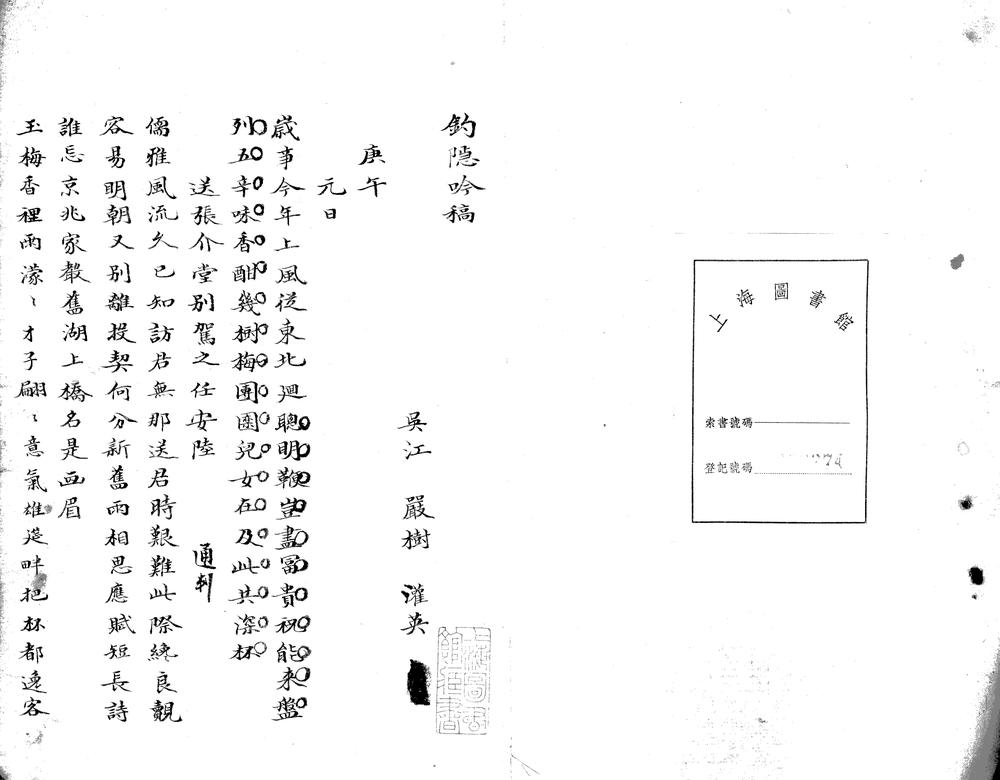 上海圖書館
索書號碼
登記號碼
釣隱吟稿
吳江 嚴樹 灌英
庚午
元日
歲事今年上風從東北迴聰明鞭豈盡富貴祝能來盤
列五辛味香酣幾樹梅團團兒女在及此共深杯
送張介堂別駕之任安陸 通判
儒雅風流久已知訪君無那送君時艱難此際終良覿
容易明朝又別離投契何分新舊雨相思應賦短長詩
誰忘京兆家聲舊湖上橋名是画眉
玉梅香裡雨濛〻才子翩〻意氣雄筵畔把杯都逸客